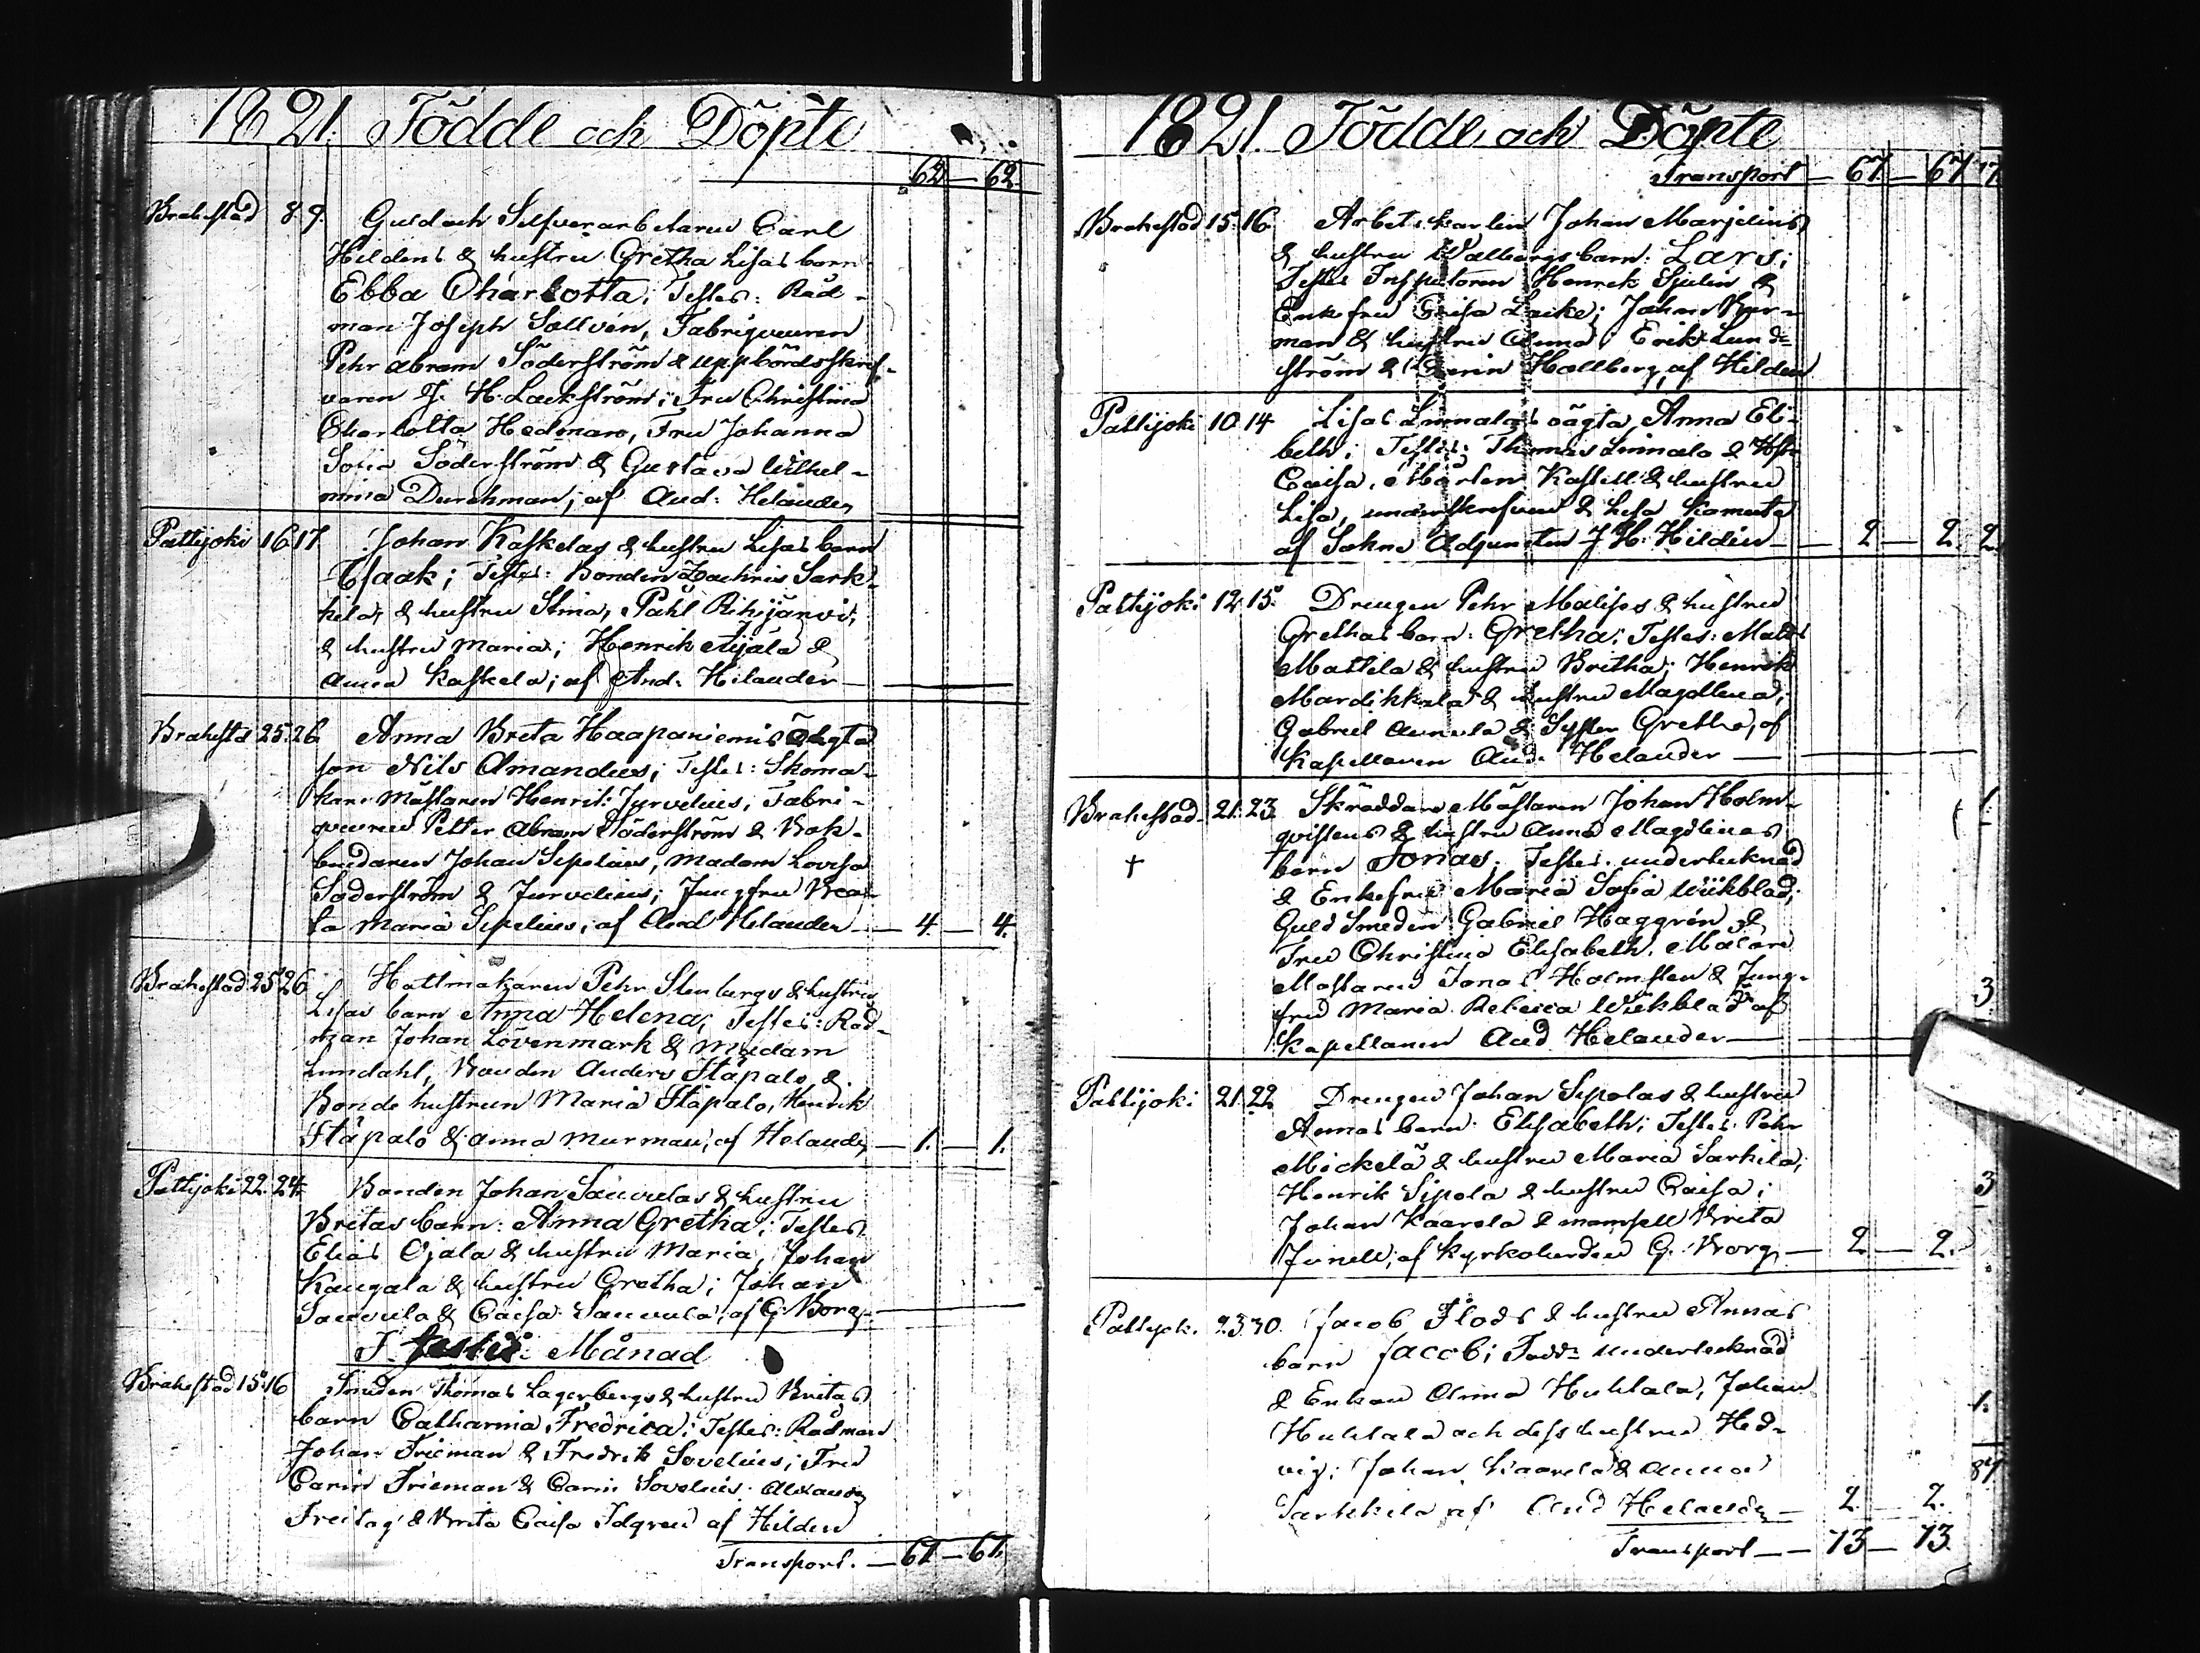 1821. Födde och Döpte
62 — 62.
Brahestad 8 9. Guld och Silfverarbetaren Carl
Hildens & hustru Gretha Lisas barn
Ebba Charlotta; Testes: Råd-
man Joseph Sallvén, Fabriqueuren
Pehr Abram Söderström & uppbördsskrif-
varen J. H. Lackström; Fru Christina
Charlotta Hedman, Fru Johanna
Sofia Söderström & Gustava Wilhel-
mina Durchman; af And: Helander
Pattijoki 16 17 Johan Kaskelas & hustru Lisas barn
Isaak; Testes: Bonden Zachris Sark-
kila, & hustru Stina, Påhl Rihijärvi,
& hustru Maria; Henrik Äijälä &
Anna Kaskela; af And. Helander —
Brahestd 25. 26. Anna Brita Haapaniemis oägta
son Nils Amandus; Testes: Skoma-
kare Mästaren Henrik Jurvelius, Fabri-
queuren Petter Abram Söderström & Bok-
bindaren Johan Sipelius, Madam Lovisa
Söderström & Jurvelius; Jungfru Bea-
ta Maria Sipelius; af And Helander — 4. — 4.
Brahestad 25 26 Hattmakaren Pehr Stenbergs & hustru
Lisas barn Anna Helena; Testes: Råd-
man Johan Lövenmark & Madam
Lundahl, Bonden Anders Ståpalo, &
Bonde hustrun Maria Ståpalo, Henrik
Ståpalo & Anna Murman, af Helander — 1. — 1.
Pattijoki 22. 24. Bonden Johan Sauvulas & hustru
Britas barn: Anna Gretha; Testes
Elias Ojala & hustru Maria, Johan
Kangala & hustru Gretha; Johan
Sauvula & Caisa Sauvula, af G. Borg —
Månad
Brahestad 15. 16 Smeden Thomas Lagerbergs & hustru Britas
barn Catharina Fredrica; Testes: Rådman
Johan Frieman & Fredrik Sovelius; Fru
Carin Frieman & Carin Sovelius. Alexander
Freitag & Brita Caisa Idgren af Hilden
Transport. — 67 — 67.
1821. Födde och Döpte
Transport — 67. — 67 17
Brahestad 15. 16. Arbetskarlen Johan Marjelius
& hustru Walborgs barn: Lars;
Testes Inspectoren Henrik Sjulin &
Enkefru Caisa Laike; Johan Bur-
man & hustru Anna; Erik Lund-
ström & Carin Hallberg, af Hilden
Pattijoki 10 14 Lisas Linnalas oägta, Anna Eli-
beth; Testes: Thomas Linnala & Hstr
Caisa, Mårten Kastell & hustru
Lisa, underskrefven & Lisa Kamuta
af Sokne Adjuncten J H: Hildén — 2 — 2. 2.
Pattijoki 12. 15. Drengen Pehr Matisos & hustru
Grethas barn: Gretha; Testes: Matts
Mattila & hustru Britha; Henrik
Mardikkala & hustru Magdlena;
Gabriel Annala & Syster Gretha, af
Kapellanen And. Helander —
Brahestad 21. 23. Skräddare Mästaren Johan Holm-
qvistens & hustru Anna Magdlenas
† barn Jonas. Testes. undertecknad
& Enkefru Maria Sofia Wikblad;
Guld Smeden Gabriel Haggrén &
Fru Christina Elisabeth. Målare
Mästaren Jonas Holmsten & Jung-
fru Maria Rebecca Wikblad af
Kapellanen And Helander —
Pattijoki 21. 22 Drengen Johan Sipolas & hustru
Annas barn: Elisabeth; Testes: Pehr
Mickelä & hustru Maria Sarkila;
Henrik Sipola & hustru Caisa;
Johan Kaarela & mamsell Brita
Junell; af Kyrkoherden G. Borg — 2 — 2.
Pattijok. 23. 30. Jacob Flods & hustru Annas
barn Jacob; Fadd: undertecknad
& Enkan Anna Huhtala, Johan
Huhtala och dess hustru Hed-
vig; Johan Kaarela & Anna
Sarkkila af And Helander — 2. — 2.
Transport — 73 — 73.